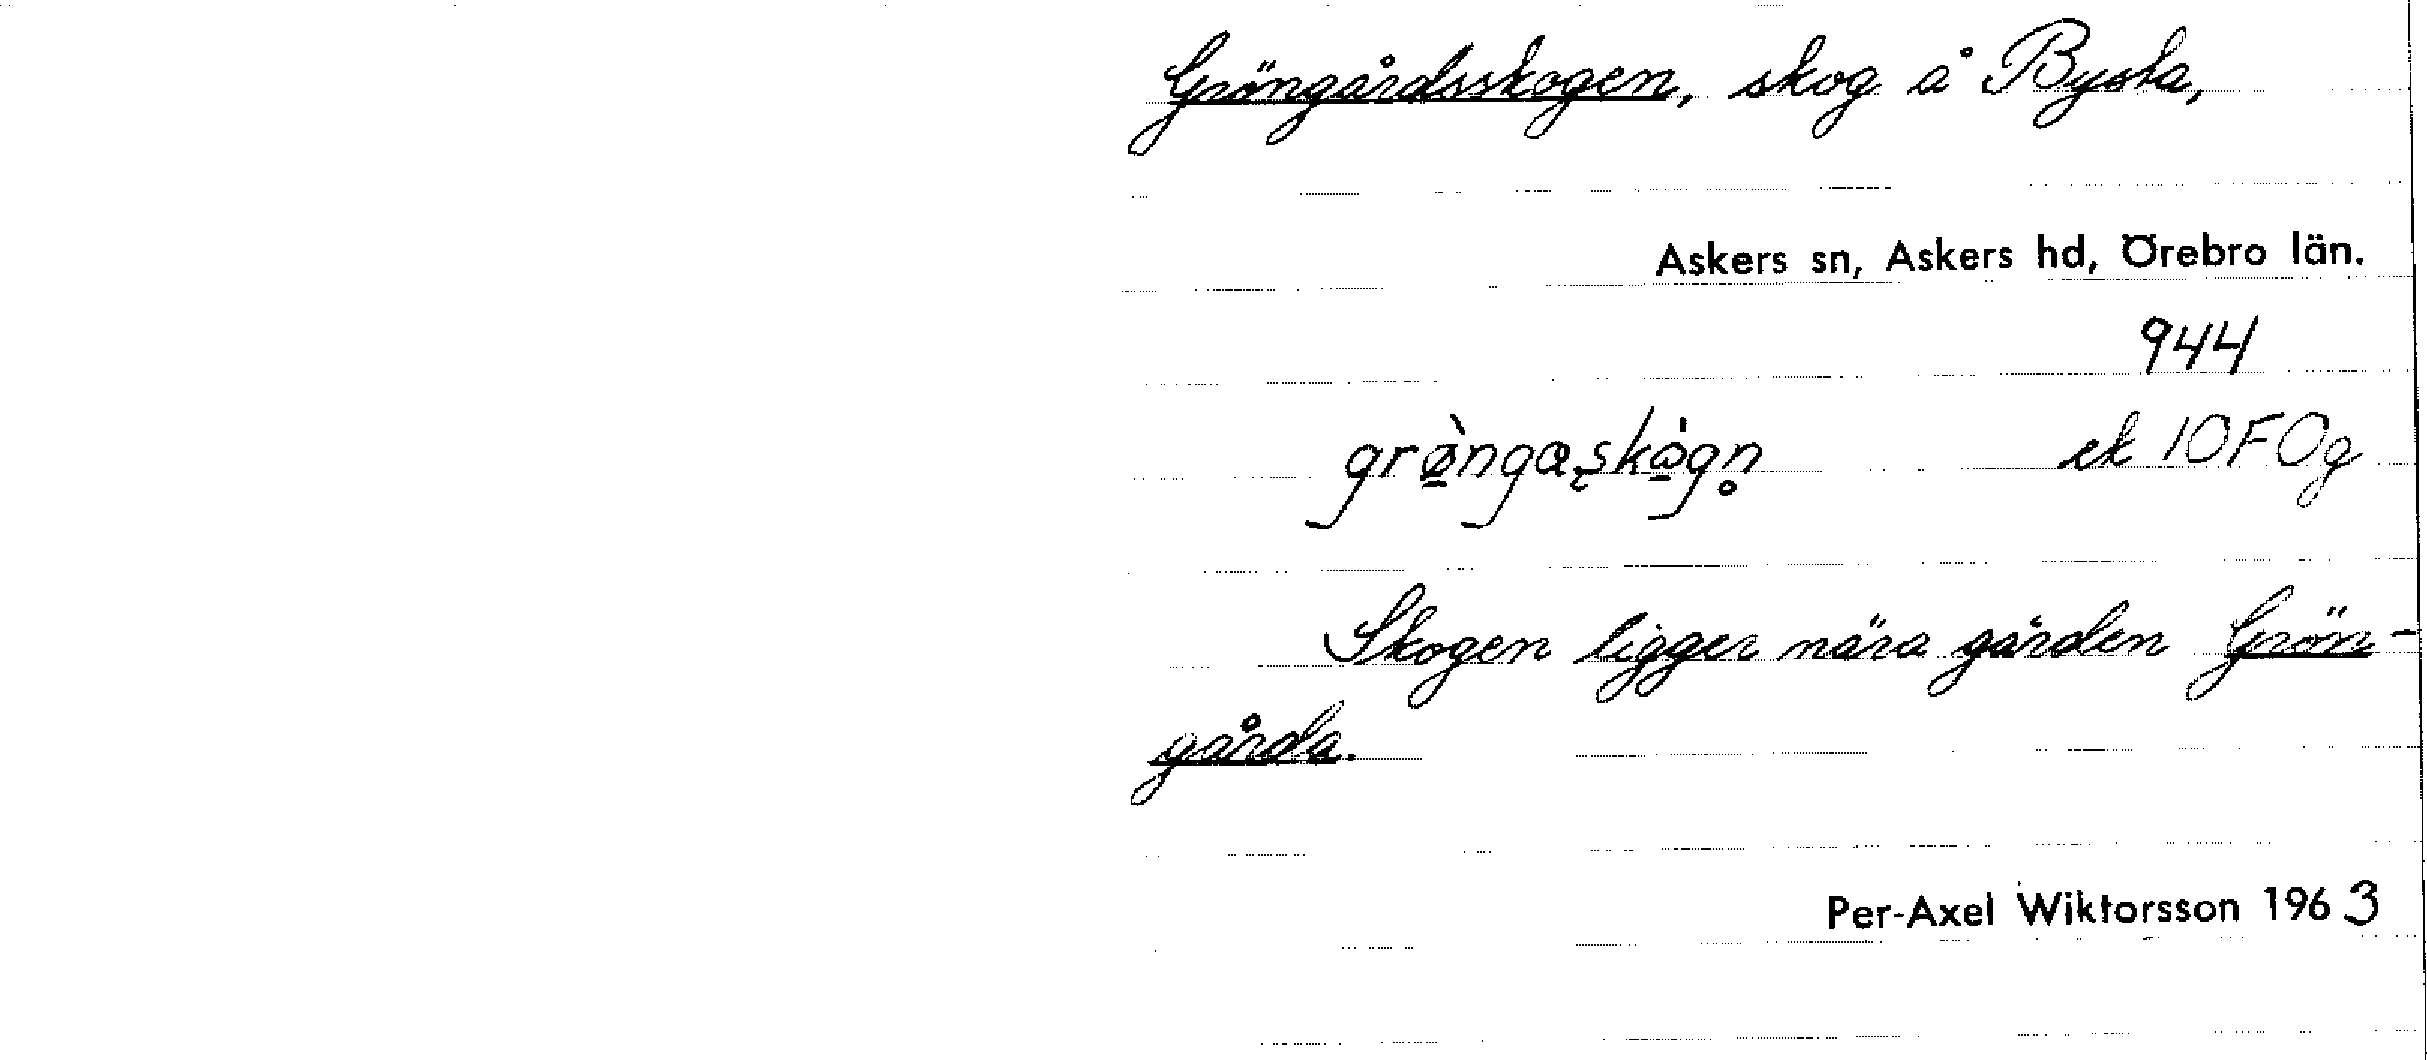 Gröngårdsskogen, skog å Bysta,
Askers sn, Askers hd, Örebro län.
944
grø̠̀ngaʂkò̠gn̥ ek 10F0g
Skogen ligger nära gården Grön-
gårda.
Per-Axel Wiktorsson 1963